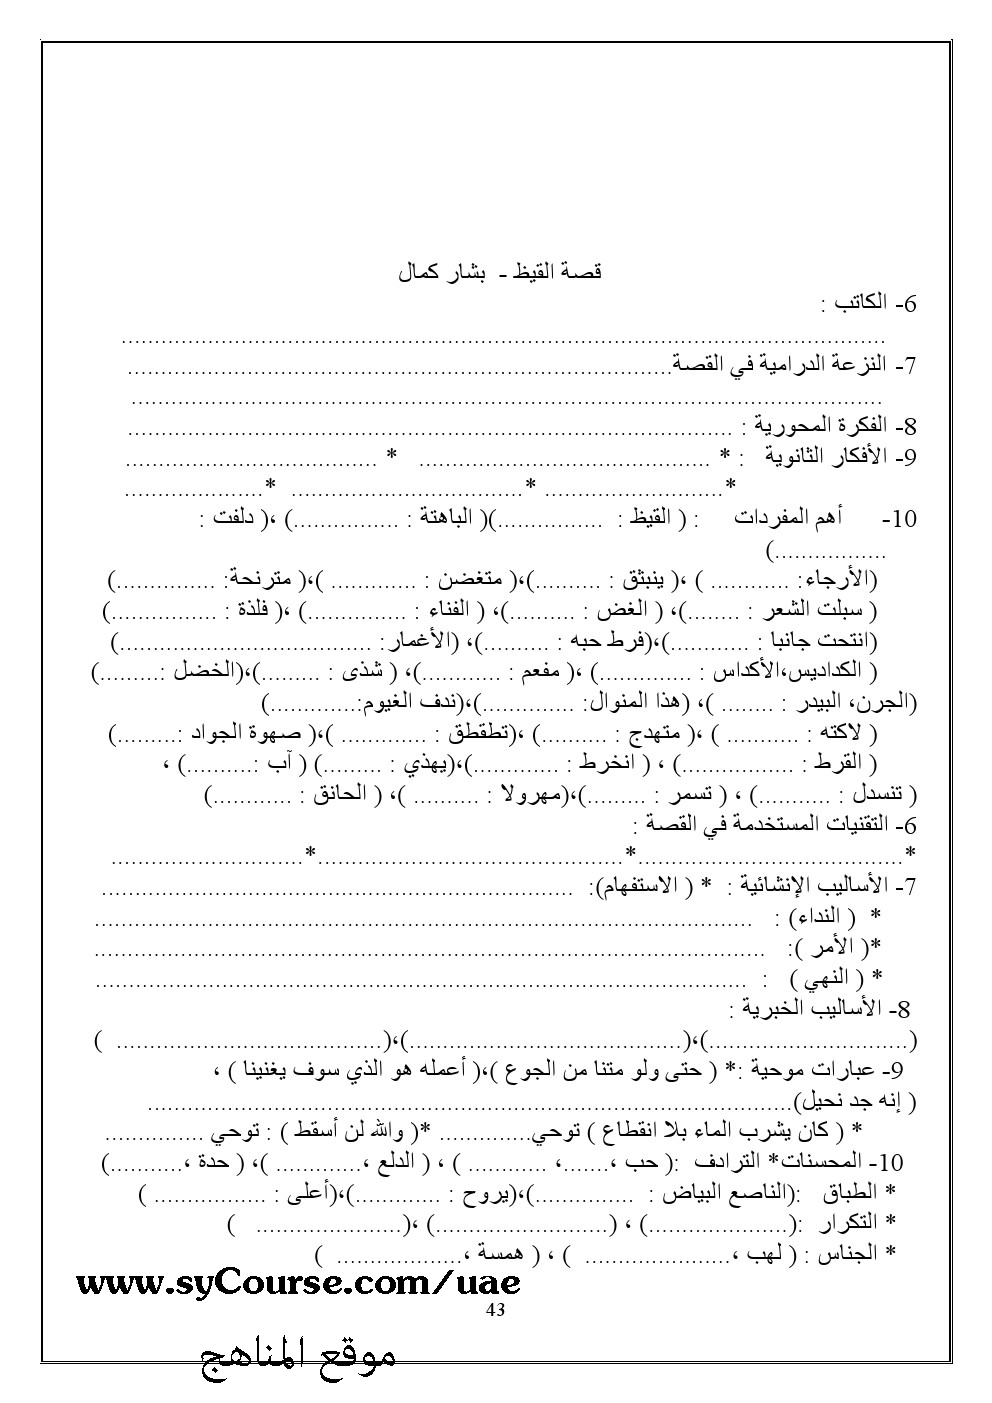 قصة القيظ - بشار كمال
6- الكاتب :
....................................................................................................................
7- النزعة الدرامية في القصة..................................................................................
.................................................................................................................
8- الفكرة المحورية : ...........................................................................................
9- الأفكار الثانوية : * ............................................ * ......................................
*........................... *................................... *.....................
10- أهم المفردات : ( القيظ : ................)( الباهتة : ................) ،( دلفت :
.................)
(الأرجاء: ............ ) ،( ينبثق : ..........)،( متغضن : ............. )،( مترنحة: ...............)
( سبلت الشعر : ........)، ( الغض : ..........)، ( الفناء : ...............) ،( فلذة : ................)
(انتحت جانبا : ............)،(فرط حبه : ..........)، (الأغمار: ......................................)
( الكداديس،الأكداس : ..............) ،( مفعم : ............)، ( شذى : .........)،(الخضل :.........)
(الجرن، البيدر : ........ )، (هذا المنوال: ..............)،(ندف الغيوم:.............)
( لاكته : ........... ) ،( متهدج : ..........) ،(تطقطق : ............. )،( صهوة الجواد :.........)
( القرط : .................) ، ( انخرط : .............)،(يهذي : .........) ( آب :..........) ،
( تنسدل : ...........) ، ( تسمر : .........)،(مهرولا : .......... )، ( الحانق : ............)
6- التقنيات المستخدمة في القصة :
*........................................*..............................................*.............................
7- الأساليب الإنشائية : * ( الاستفهام): .......................................................................
* ( النداء) : ...................................................................................................
*( الأمر ): .....................................................................................................
* ( النهي ) : ..................................................................................................
8- الأساليب الخبرية :
(..............................)،(.........................................)،(........................................ )
9- عبارات موحية :* ( حتى ولو متنا من الجوع )،( أعمله هو الذي سوف يغنينا ) ،
( إنه جد نحيل).................................................................................................
* ( كان يشرب الماء بلا انقطاع ) توحي.............. *( والله لن أسقط ) : توحي ...............
10- المحسنات* الترادف :( حب ،.......، ............ ) ، ( الدلع ،............. )، ( حدة ،...........)
* الطباق :(الناصع البياض : ...............)،(يروح : .............)،(أعلى : ................. )
* التكرار :(.....................) ، (..........................) ،(...................... )
* الجناس : ( لهب ،...................... ) ، ( همسة ،................... )
www.syCourse.com/uae
43
موقع المناهج